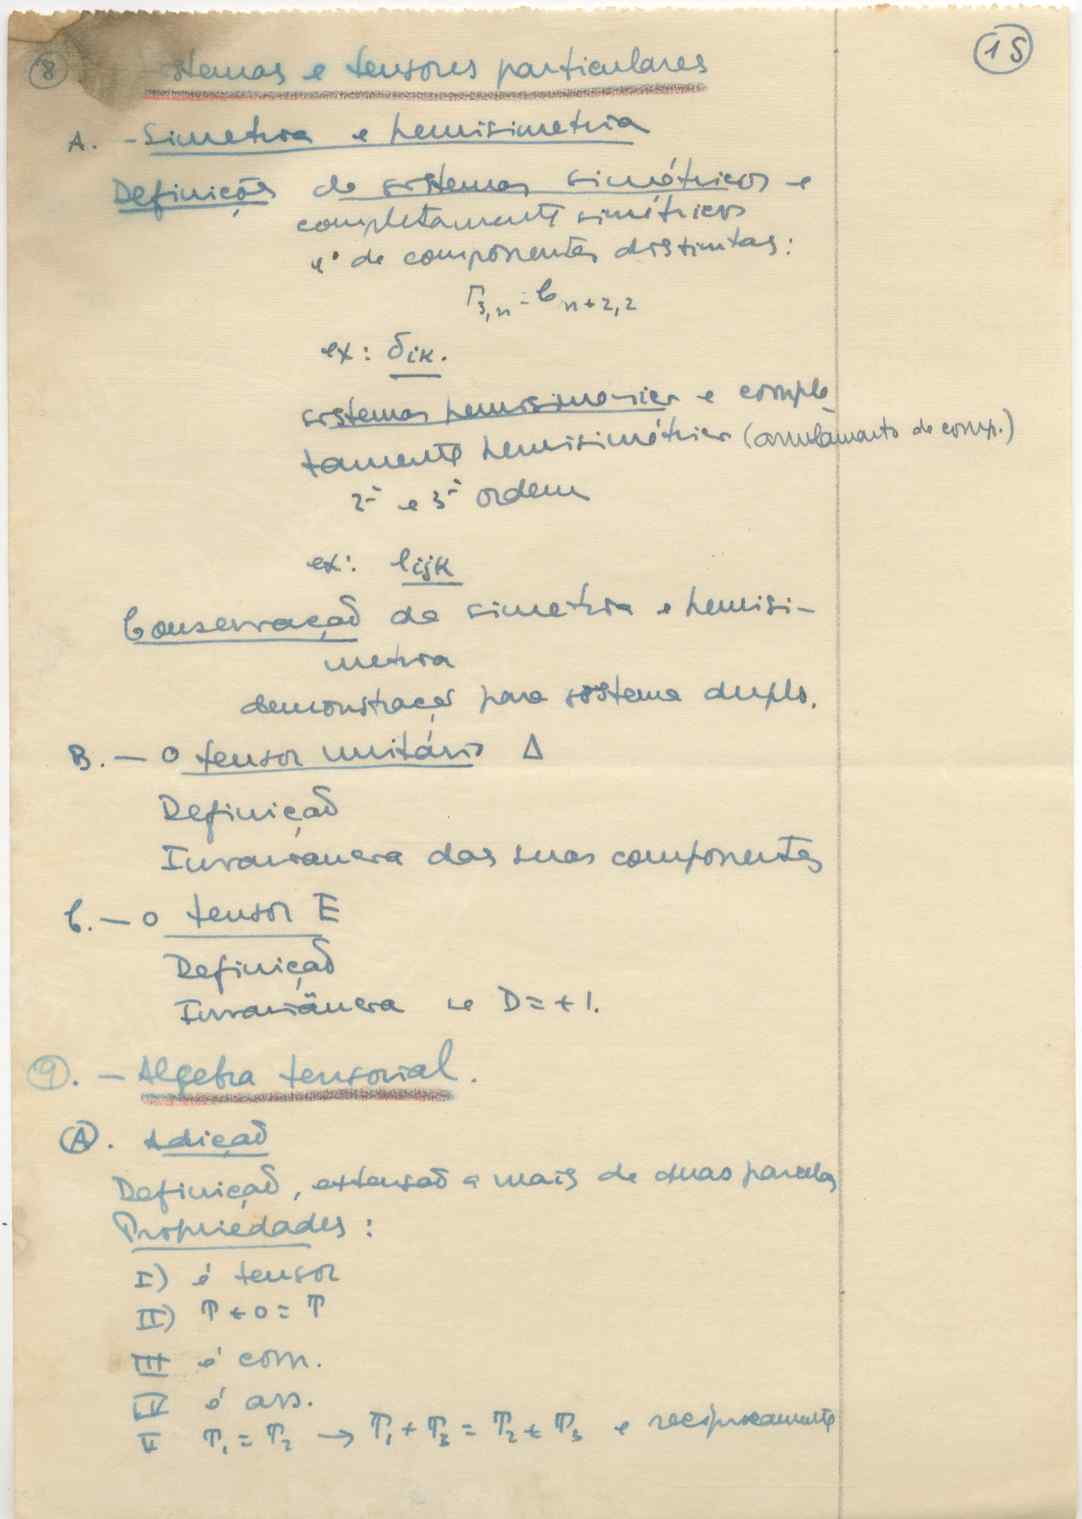 15
8 stemas e tensores particulares
A. - Simetria e hemisimetria
Definição de sistemas simétricos e
completamente simétricos
nº de componentes distintas:
Γ3,n = Cn+2,2
ex: δik.
sistemas hemisimétricos e comple
tamente hemisimétricos (anulamento de comp.)
2ª e 3ª ordem
ex: eijk
Conservação da simetria e hemisi-
metria
demonstração para sistema duplo.
B. — O tensor unitário Δ
Definição
Invariância das suas componentes
C. — O tensor E
Definição
Invariância se D = +1.
9. — Algebra tensorial.
A. Adição
Definição, extensão a mais de duas parcelas
Propriedades:
I) é tensor
II) T + 0 = T
III é com.
IV é ass.
V T1 = T2 → T1 + T3 = T2 + T3 e reciprocamente